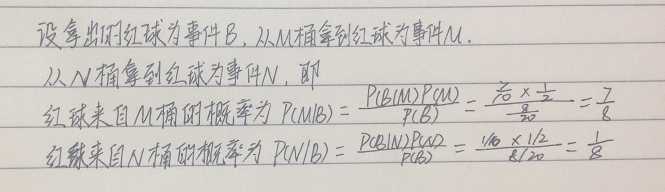 设拿出的红球为事件B,从M桶拿到红球为事件M.
从N桶拿到红球为事件N,即
红球来自M桶的概率为 P(M|B) = P(B|M)P(M) / P(B) = 7/10 × 1/2 / 8/20 = 7/8
红球来自N桶的概率为 P(N|B) = P(B|N)P(N) / P(B) = 1/10 × 1/2 / 8/20 = 1/8